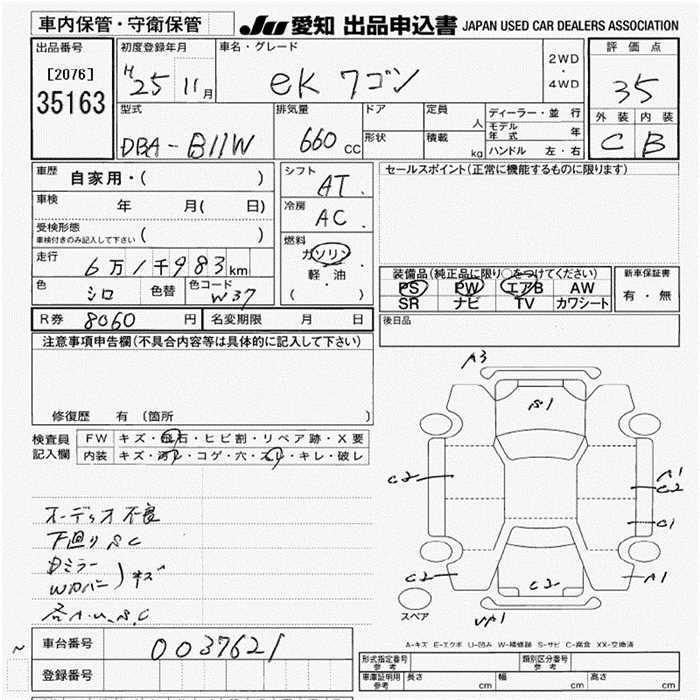 車内保管・守衛保管
JU 愛知 出品申込書 JAPAN USED CAR DEALERS ASSOCIATION
出品番号
[2076]
35163
初度登録年月
H25 11月
車名・グレード
eK ワゴン
2WD
・
4WD
評価点
35
外装 内装
C B
型式
DBA-B11W
排気量
660 cc
ドア
形状
定員 人
積載 kg
ディーラー・並行
モデル年式 年
ハンドル 左・右
車歴 自家用・( )
車検 年 月( 日)
受検形態
車検付きのみ記入して下さい ( )
走行 6万1千983km
色 シロ 色替 色コード W37
シフト AT
冷房 AC
燃料
ガソリン
軽・油
( ・ )
セールスポイント(正常に機能するものに限ります)
装備品(純正品に限り○をつけてください)
PS PW エアB AW
SR ナビ TV カワシート
新車保証書
有・無
R券 8060 円
名変期限 月 日
後日品
注意事項申告欄(不具合内容等は具体的に記入して下さい)
修復歴 有(箇所 )
検査員記入欄
FW キズ・飛石・ヒビ割・リペア跡・X要
内装 キズ・汚レ・コゲ・穴・スリ・キレ・破レ
オーディオ不良
下廻りS.C
Dミラー
Wカバー )キズ
各A.U.S.C
A3
S1
C2
A1
C2
C1
C2
C2
A1
スペア
A-キズ E-エクボ U-凹み W-補修跡 S-サビ C-腐食 XX-交換済
車台番号 0037621
登録番号
形式指定番号 参考
類別区分番号 参考
車庫証明用 参考
長さ cm
幅 cm
高さ cm